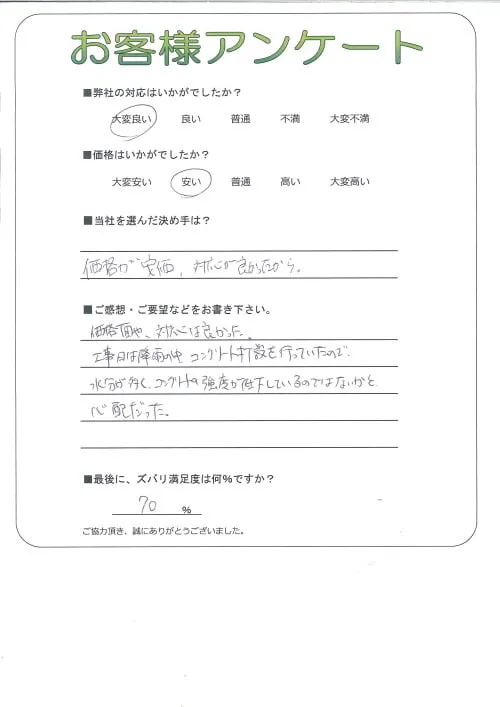 お客様アンケート
■弊社の対応はいかがでしたか？
大変良い 良い 普通 不満 大変不満
■価格はいかがでしたか？
大変安い 安い 普通 高い 大変高い
■当社を選んだ決め手は？
価格が安価、対応が良かったから。
■ご感想・ご要望などをお書き下さい。
価格面や、対応は良かった。
工事日は降雨の中コンクリート打設を行っていたので、
水分が多く、コンクリートの強度が低下しているのではないかと
心配だった。
■最後に、ズバリ満足度は何％ですか？
70 ％
ご協力頂き、誠にありがとうございました。